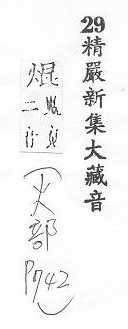 29精嚴新集大藏音
焜
(火部
P742)